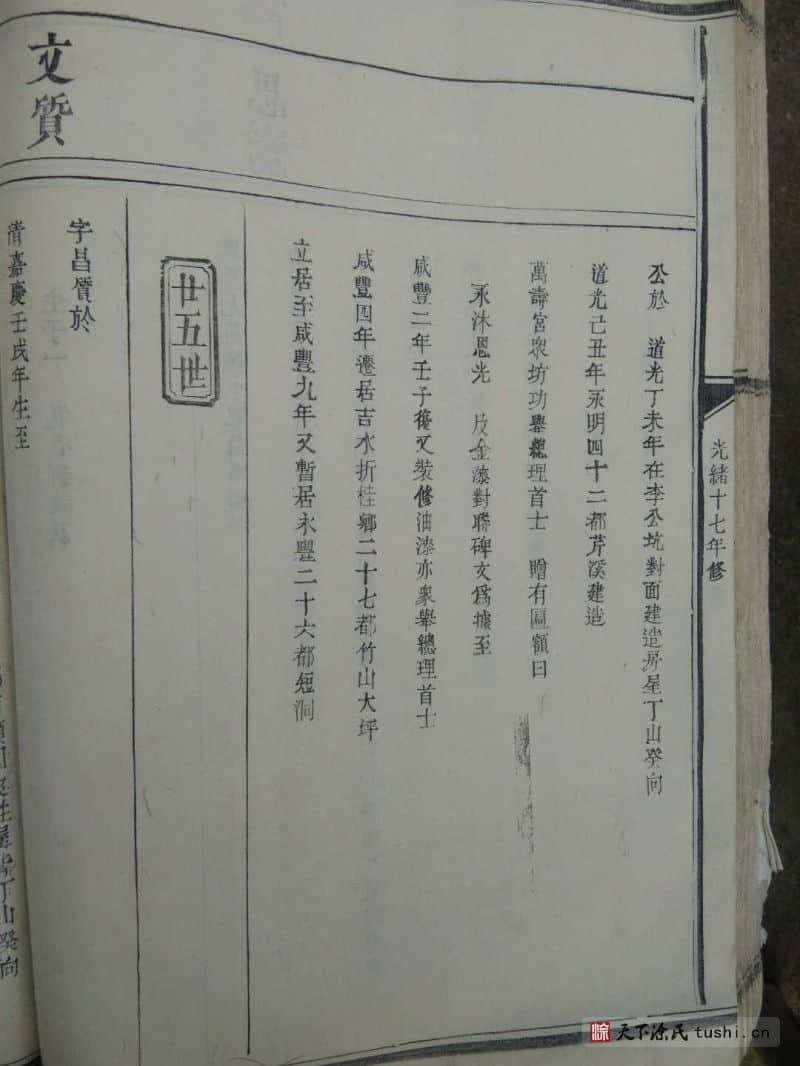 光緒十七年修
公於 道光丁未年在李公坑對面建造房屋丁山癸向
道光己丑年永明四十二都芹溪建造
萬壽宮眾坊功舉總理首士 贈有匾額曰
永沐恩光 及金漆對聯碑文為據至
咸豐二年壬子後又裝修油漆亦眾舉總理首士
咸豐四年遷居吉水折桂鄉二十七都竹山大坪
立居至咸豐九年又暫居永豐二十六都短洞
廿五世
文質
字昌質於
清嘉慶壬戌年生至
屋場丁山癸向
天下凃氏 tushi.cn